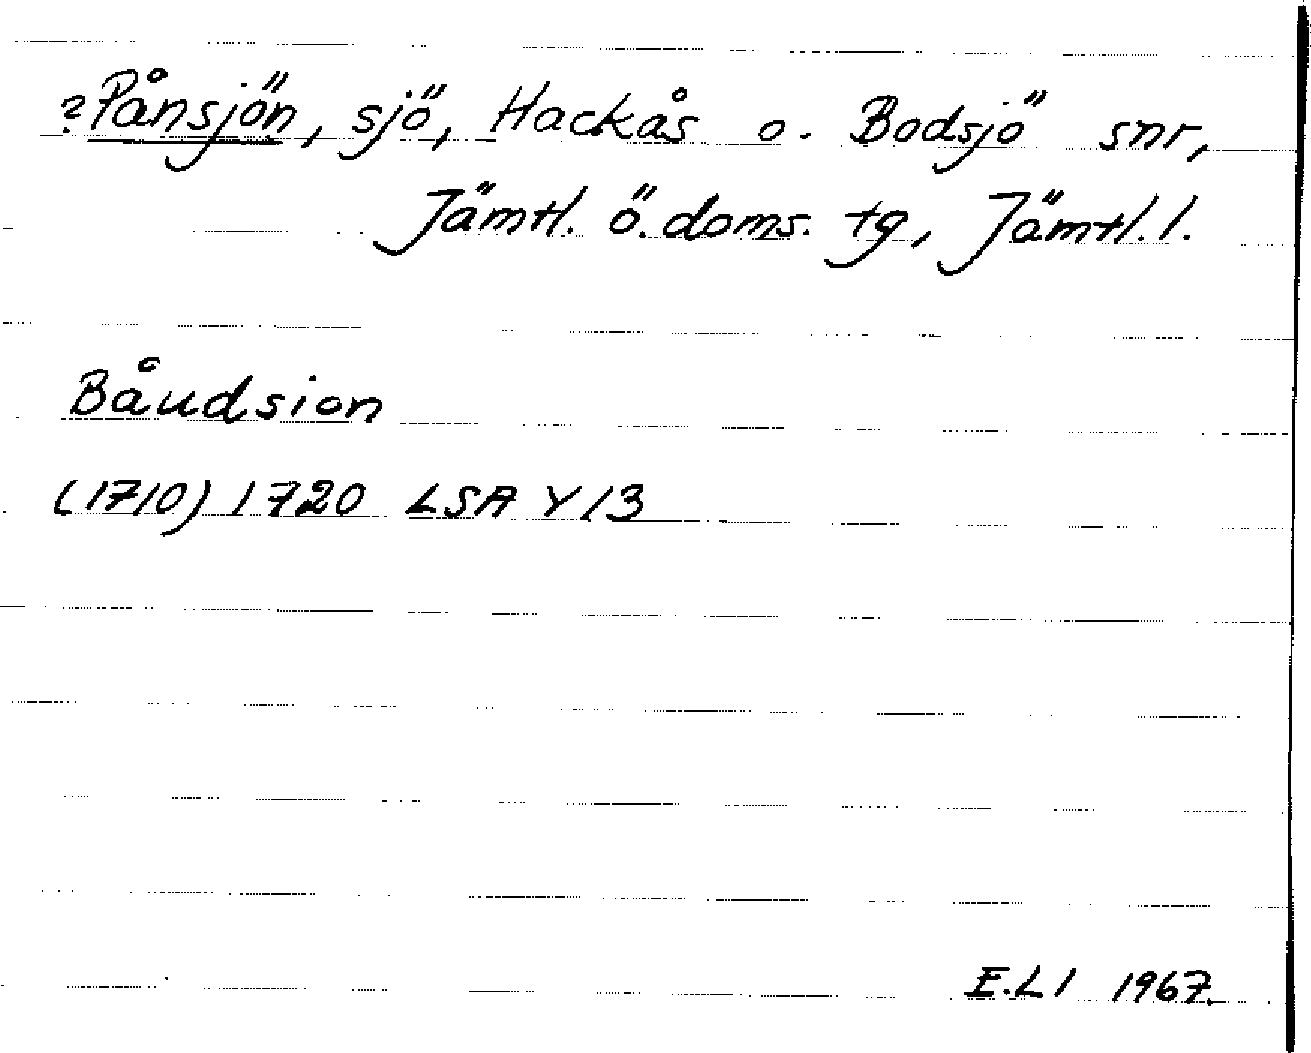 ?Pånsjön, sjö, Hackås o. Bodsjö snr,
Jämtl. ö. doms. tg, Jämtl. l.
Båudsion
(1710) 1720 LSA Y 13
E.Ll 1967.